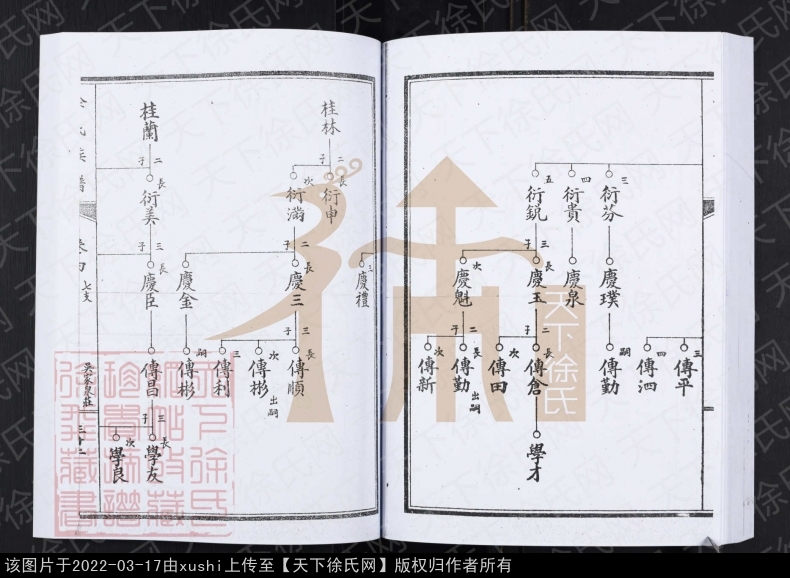 三 四 五
衍芬
衍貴
衍銳
三子
長 次
慶璞
慶泉
慶玉
慶魁
二子 二子
三 四 嗣 長 次 長 次
傳平
傳泗
傳勤
傳倉
傳田
傳勤
出嗣
傳新
學才
桂林
二子
長 次
衍申
衍滿
二子
三 長
慶禮
慶三
慶金
三子
長 次 三 嗣
傳順
傳彬
出嗣
傳利
傳彬
桂蘭
二子
長
衍美
三子
長
慶臣
傳昌
三子
長 次
學友
學良
七支
天下徐氏
天下徐氏网
该图片于2022-03-17由xushi上传至【天下徐氏网】版权归作者所有